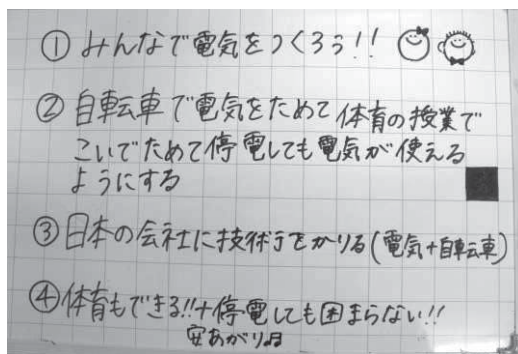 ① みんなで電気をつくろう!!
② 自転車で電気をためて体育の授業で
こいでためて停電しても電気が使える
ようにする
③ 日本の会社に技術をかりる(電気+自転車)
④ 体育もできる!!+停電しても困まらない!!
安あがり